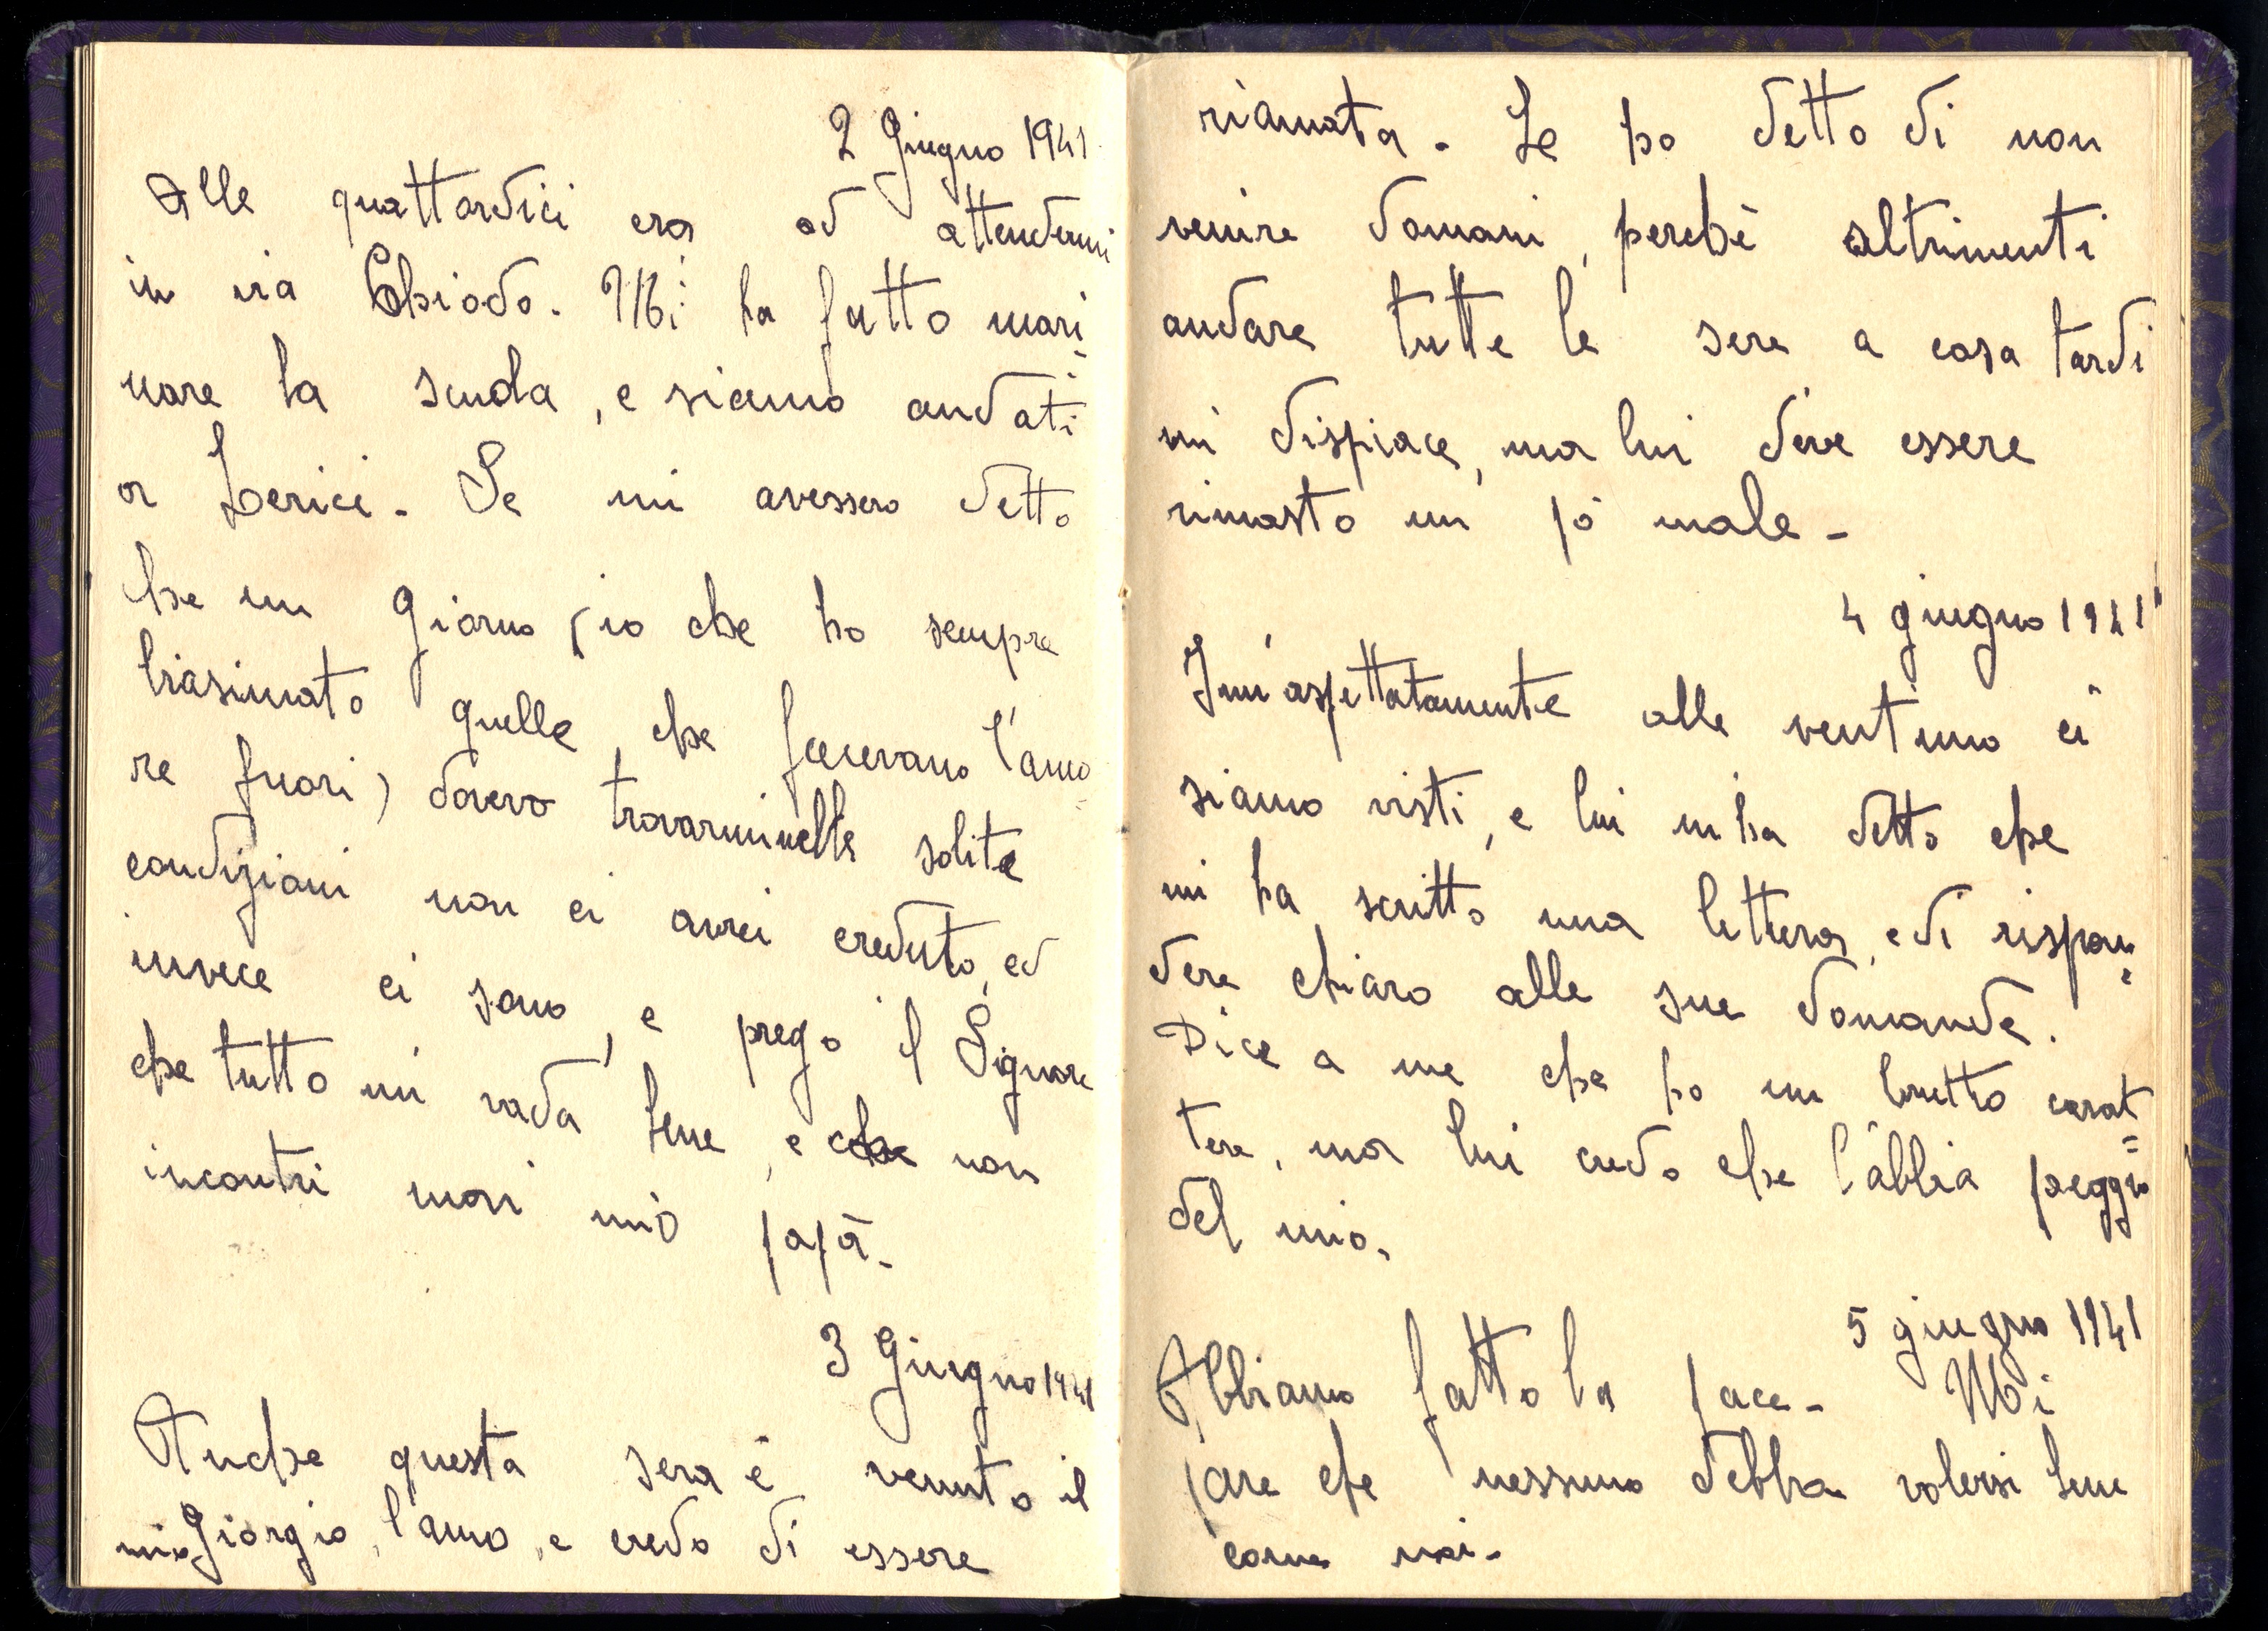 2 Giugno 1941
Alle quattordici era ad attendermi
in via Chiodo. Mi ha fatto mari-
nare la scuola, e siamo andati
a Lerici - Se mi avessero detto
che un giorno (io che ho sempre
biasimato quelle, che facevano l'amo=
re fuori) dovevo trovarmi nelle solite
condizioni non ci avrei creduto, ed
invece ci sono, e prego il Signore
che tutto mi vada bene, e che non
incontri mai mio papà.
3 Giugno 1941
Anche questa sera è venuto il
mio Giorgio, l'amo, e credo di essere
riamata - Le ho detto di non
venire domani, perchè altrimenti
andare tutte le sere a casa tardi
mi dispiace, ma lui deve essere
rimasto un pò male -
4 giugno 1941
Inn'aspettatamente alle ventuno ci
siamo visti, e lui m'ha detto che
mi ha scritto una lettera, e di rispon=
dere chiaro alle sue domande.
Dice a me che ho un brutto carat=
tere, ma lui credo che l'abbia peggio
del mio.
5 giugno 1941
Abbiamo fatto la pace - Mi
pare che nessuno debba volersi bene
come noi -